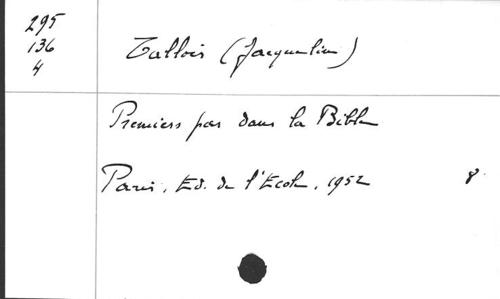 295
136
4
Tallois (Jacqueline)
Premiers pas dans la Bible
Paris, Ed. de l'Ecole, 1952 8°